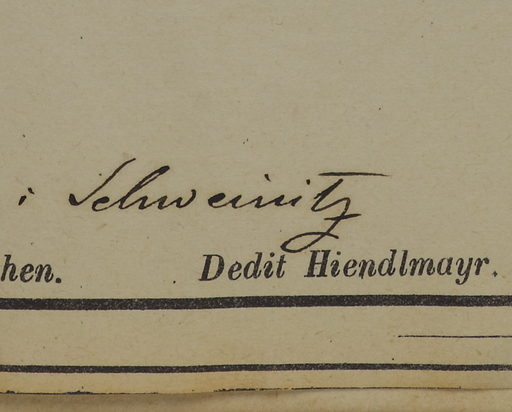 i Schweinitz
hen. Dedit Hiendlmayr.